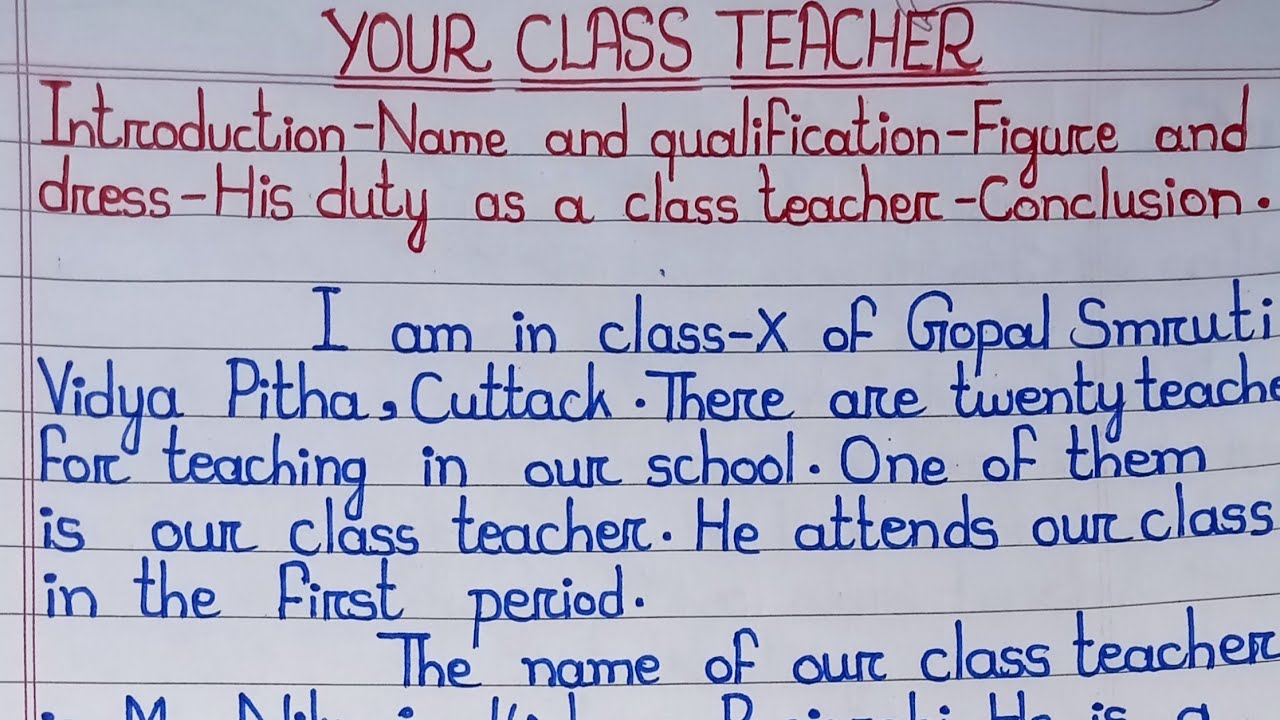 YOUR CLASS TEACHER
Introduction-Name and qualification-Figure and
dress-His duty as a class teacher-Conclusion.
I am in class-X of Gopal Smruti
Vidya Pitha, Cuttack. There are twenty teache
for teaching in our school. One of them
is our class teacher. He attends our class
in the first period.
The name of our class teacher
He is a